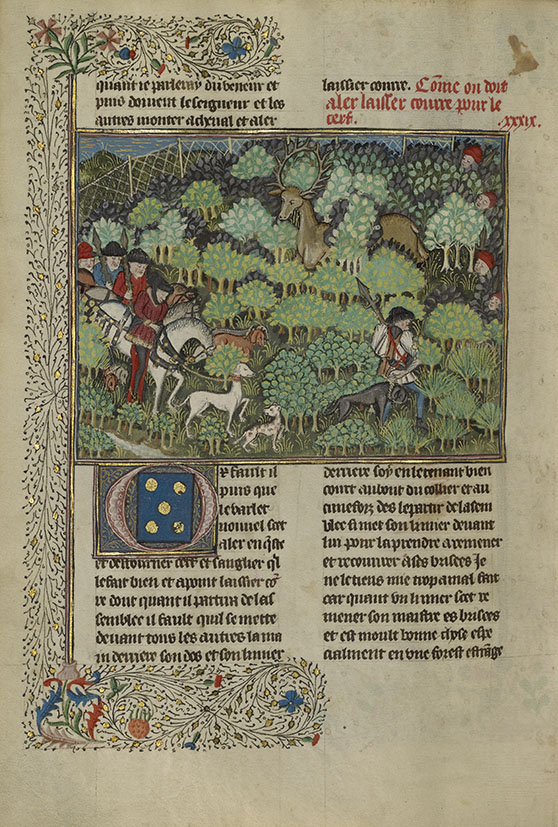 quant ie parleray du veneur et
puis doiuent le seigneur et les
autres monter acheual et aler
laissier courre. Cōme on doit
aler laisser courre pour le
cerf. .xxxix.
Or fault il
puis que
le varlet
nouuel scet
aler en q̄ste
et destourner cerf et sanglier q̄l
le fait bien et apoint laissier co᷒
re dont quant il partira de las
semblee il fault quil se mette
deuant tous les autres la ma
in derriere son dos et son limer
derriere soy en le tenant bien
court au bout du collier et au
cuneforz des le partir de lasem
blee a mes son limer deuant
lui pour laprendre a remener
et recouurer a ses brisees Je
ne le tiens mie trop a mal fait
car quant vn limer scet re
mener son maistre es brisees
et est moult bonne chose espe
cialment en vne forest estrāge